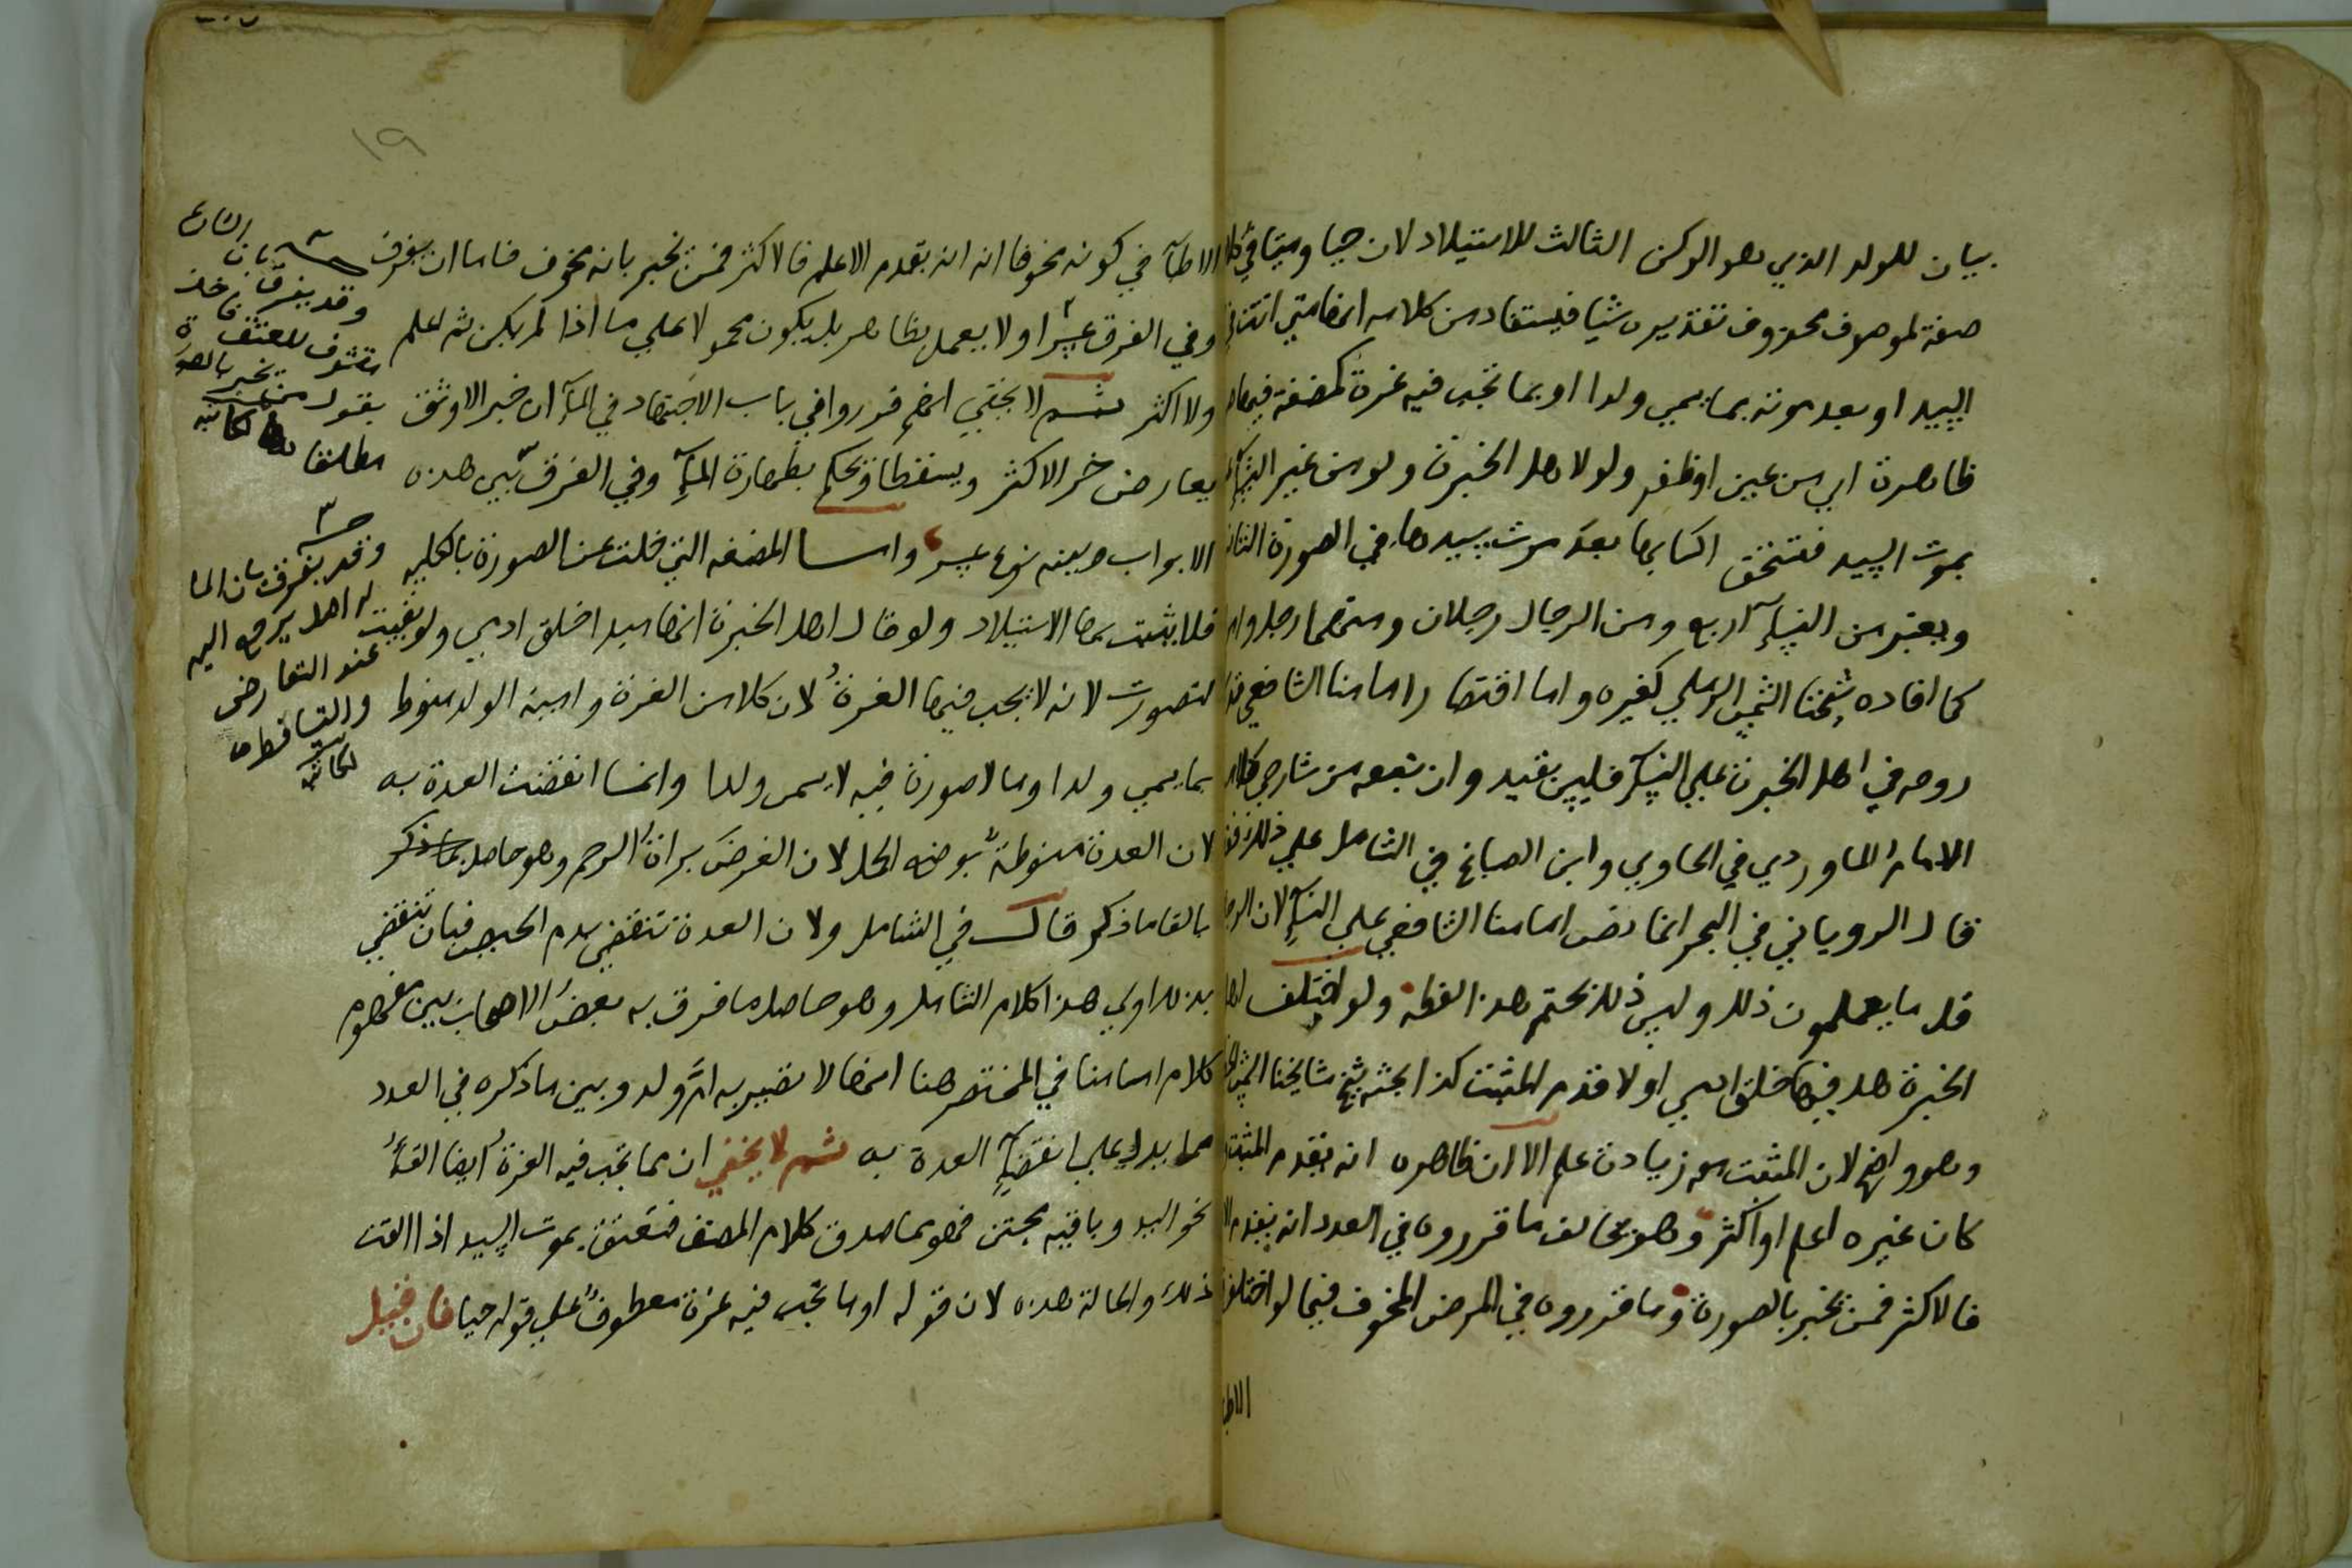 بيان للولد الذي هو الركن الثالث للاستيلاد لان حيا وميتا في كلا
صفة لموصوف محذوف تقديره شيا فيستفاد من كلامه انها متي اتت في
السيد او بعد موته بما يسمي ولدا او بما تجب فيه غرة كمضغة فيها
ظاهرة اي من عين او ظفر ولو لاهل الخبرة ولو من غير النسآ
بموت السيد فتستحق اكسابها بعد موت سيدها في الصورة الثان
ويعتبر من النسآ اربع ومن الرجال رجلان ومنهما رجل وامر
كما افاده شيخنا الشمس الرملي كغيره واما اقتصار امامنا الشافعي
روحه في اهل الخبرة علي النسآ فليس بقيد وان تبعه من شارحي كلام
الامام الماوردي في الحاوي وابن الصباغ في الشامل علي ذلك فقد
قال الروياني في البحر انما نص امامنا الشافعي علي النسآ لان الرجا
قل ما يعلمون ذلك وليس ذلك بحتم هذا لفظه ولو اختلف اهل
الخبرة هل فيها خلق ادمي او لا قدم المثبت كذا بحثه شيخ مشايخنا الشمس
وهو واضح لان المثبت معه زيادة علم الا ان ظاهره انه يقدم المثبت
كان غيره اعلم او اكثر وهو مخالف ما قرروه في العدد انه يقدم الا
فالاكثر فمن تخبر بالصورة وما قرروه في المرض المخوف فيما لو اختلف
الاطبا
١٩
الاطبآ في كونه مخوفا انه انه يقدم الاعلم فالاكثر فمن تخبر بانه مخوف فاما ان يفرق
وفي الفرق عسر او لا يعمل بظاهر بل يكون محمولا علي ما اذا لم يكن ثم اعلم
ولا اكثر ثم لا يخفي انهم قرروا في باب الاجتهاد في المآ ان خبر الاوثق
يعارض خبر الاكثر ويسقطا ونحكم بطهارة المآ وفي الفرق بين هذه
الابواب وبينه نوع عسر واما المضغه التي خلت عن الصورة بالكليه
فلا يثبت بها الاستيلاد ولو قال اهل الخبرة انها مبدا خلق ادمي ولو بقيت
لتصورت لانه لا يجب فيها الغرة لان كلا من الغرة وامية الولد منوط
بما يسمي ولدا وما لا صورة فيه لا يسمي ولدا وانما انقضت العدة به
لان العدة منوطة بوضع الحمل لان الغرض براة الرحم وهو حاصل بما ذكر
بالقا ما ذكر قال في الشامل ولان العدة تنقضي بدم الحيض فبان تنقضي
بذلك اولي هذا كلام الشامل وهو حاصل ما فرق به بعض الاصحاب بين مفهوم
كلام امامنا في المختصر هنا انها لا تصير به ام ولد وبين ما ذكره في العدد
مما يدل علي انقضآ العدة به ثم لا يخفي ان مما تجب فيه الغرة ايضا القآ
نحو اليد وباقيه مجتن فهو مما صدق كلام المصنف فتعتق بموت السيد اذا القت
ذلك والحالة هذه لان قوله او ما تجب فيه غرة معطوف علي قوله حيا فان قيل
وقد يفرق بان الشارع
متشوف للعتق
بقول من تخبر بالصورة
مطلقا لكاتبه
وقد يفرق بان الما
له اهل يرجع اليه
عند التعارض
والتساقط
لكاتبه